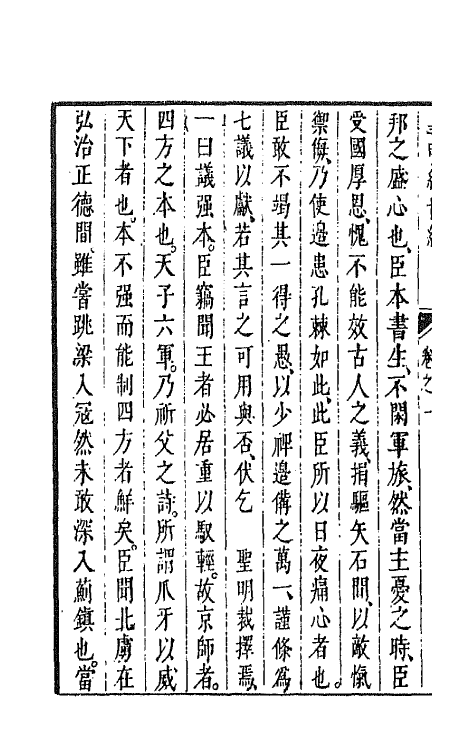 卷之一
邦之盛心也、臣本書生、不閑軍旅、然當主憂之時、臣
受國厚恩、愧不能效古人之義、捐軀矢石間、以敵愾
禦侮、乃使邊患孔棘如此、此臣所以日夜痛心者也。
臣敢不竭其一得之愚、以少裨邊備之萬一、謹條為
七議以獻、若其言之可用與否、伏乞　聖明裁擇焉、
一曰議强本。臣竊聞王者必居重以馭輕。故京師者。
四方之本也。天子六軍。乃祈父之詩。所謂爪牙以威
天下者也。本不强而能制四方者鮮矣。臣聞北虜在
弘治正德間、雖嘗跳梁入寇然未敢深入薊鎮也。當